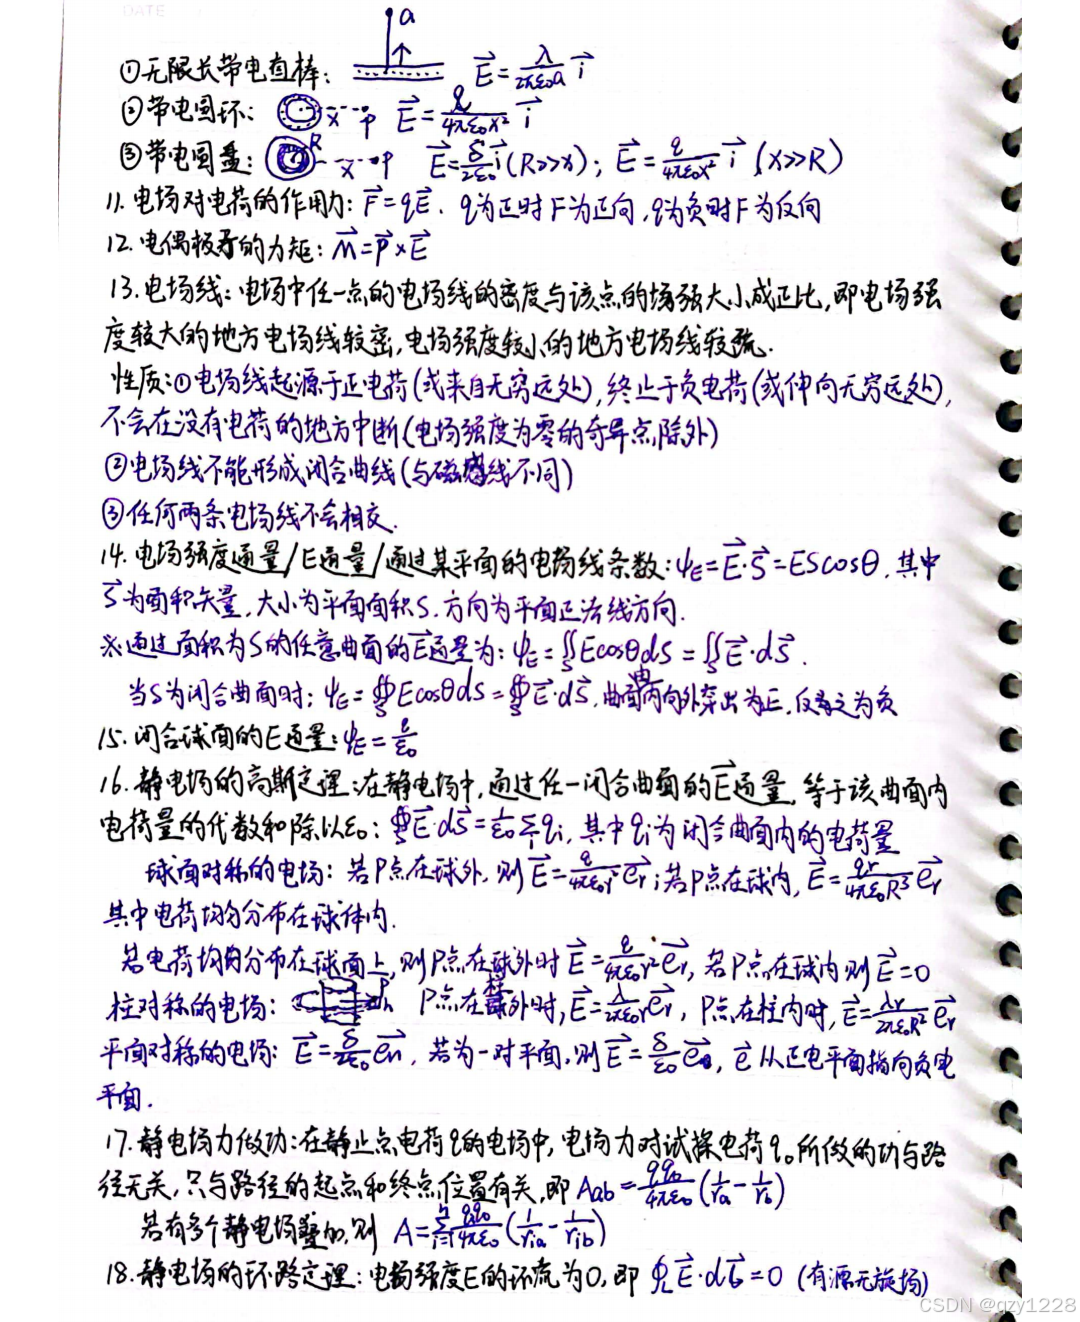 DATE
a
①无限长带电直棒: E⃗=λ/2πε₀a i⃗
②带电圆环: x p E⃗=q/4πε₀x² i⃗
③带电圆盘: R x p E⃗=δ/2ε₀ i⃗ (R>>x); E⃗=q/4πε₀x² i⃗ (x>>R)
11.电场对电荷的作用力: F⃗=qE⃗. q为正时F为正向,q为负时F为反向
12.电偶极子的力矩: M⃗=P⃗×E⃗
13.电场线:电场中任一点的电场线的密度与该点的场强大小成正比,即电场强
度较大的地方电场线较密,电场强度较小的地方电场线较疏.
性质:①电场线起源于正电荷(或来自无穷远处),终止于负电荷(或伸向无穷远处),
不会在没有电荷的地方中断(电场强度为零的奇异点除外)
②电场线不能形成闭合曲线(与磁感线不同)
③任何两条电场线不会相交.
14.电场强度通量/E通量/通过某平面的电场线条数:ψE=E⃗·S⃗=EScosθ,其中
S⃗为面积矢量,大小为平面面积S.方向为平面正法线方向.
※通过面积为S的任意曲面的E⃗通量为: ψE=∬s Ecosθds=∬s E⃗·dS⃗.
当S为闭合曲面时: ψE=∯s Ecosθds=∯s E⃗·dS⃗.曲面由内向外穿出为正,反之为负
15.闭合球面的E通量:ψE=q/ε₀
16.静电场的高斯定理:在静电场中,通过任一闭合曲面的E⃗通量,等于该曲面内
电荷量的代数和除以ε₀: ∯s E⃗·dS⃗=1/ε₀ Σi qi,其中qi为闭合曲面内的电荷量
球面对称的电场: 若P点在球外,则E⃗=q/4πε₀r² e⃗r;若P点在球内,E⃗=qr/4πε₀R³ e⃗r
其中电荷均匀分布在球体内.
若电荷均匀分布在球面上,则P点在球外时E⃗=q/4πε₀r² e⃗r,若P点在球内则E⃗=0
柱对称的电场: P P点在柱外时,E⃗=λ/2πε₀r e⃗r, P点在柱内时,E⃗=λr/2πε₀R² e⃗r
平面对称的电场: E⃗=δ/2ε₀ e⃗n, 若为一对平面.则E⃗=δ/ε₀ e⃗, e⃗从正电平面指向负电
平面.
17.静电场力做功:在静止点电荷q的电场中,电场力对试探电荷q₀所做的功与路
径无关,只与路径的起点和终点位置有关,即 Aab=qq₀/4πε₀(1/ra-1/rb)
若有多个静电场叠加,则 A=Σⁿi=1 qiq₀/4πε₀(1/ria-1/rib)
18.静电场的环路定理:电场强度E的环流为0,即 ∮L E⃗·dl⃗=0 (有源无旋场)
CSDN @qzy1228